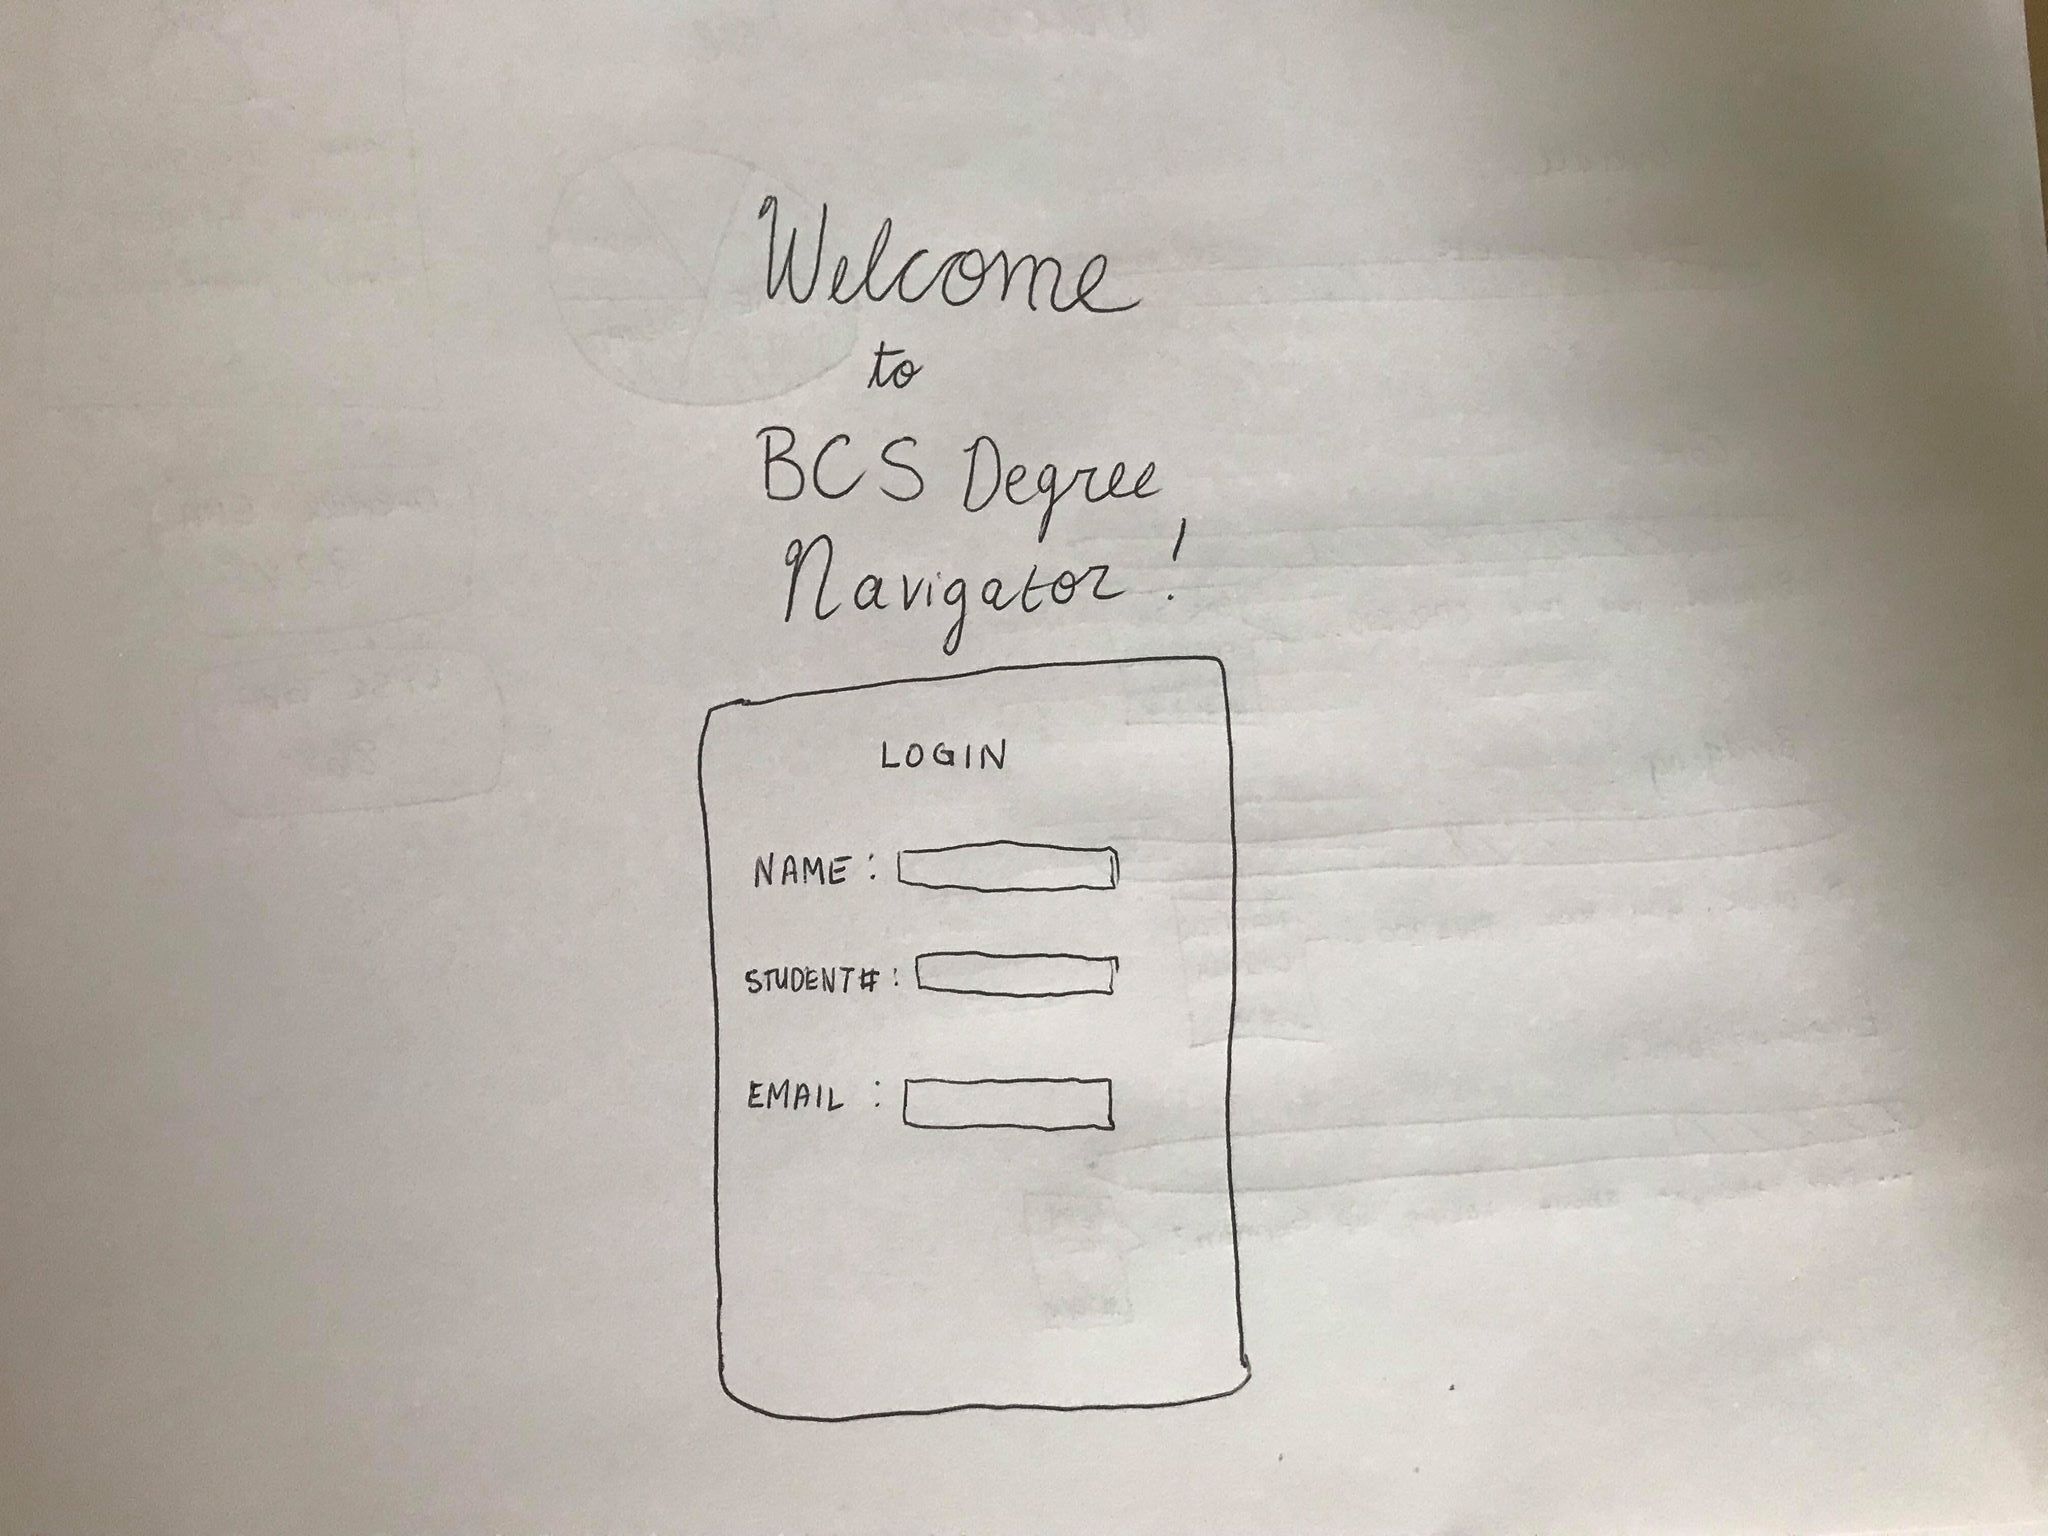 Welcome
to
BCS Degree
Navigator!
LOGIN
NAME:
STUDENT#:
EMAIL :